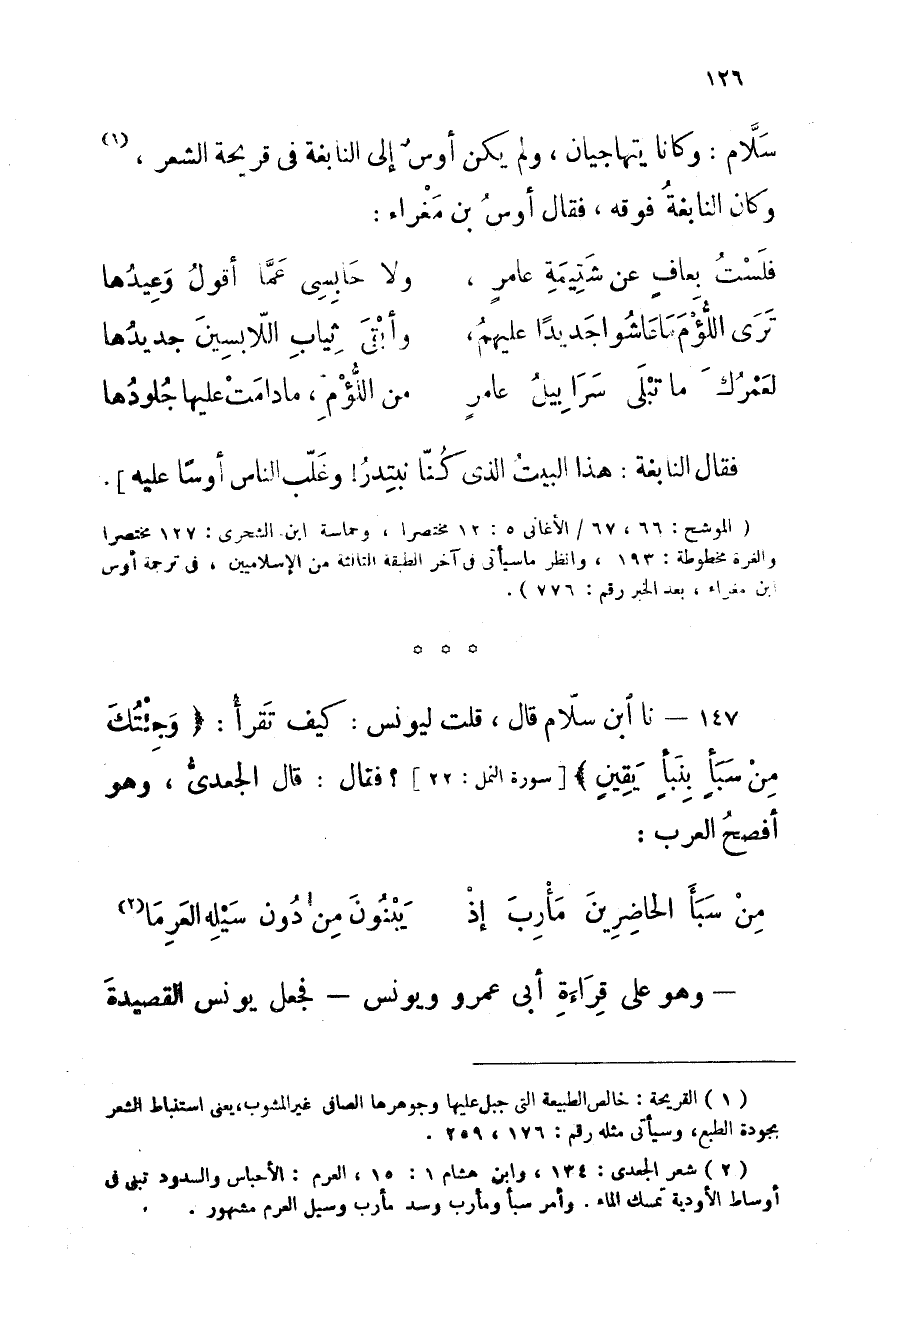 ١٢٦
سَلَّام : وكانا يتهاجيان ، ولم يكن أوسٌ إلى النابغة فى قريحة الشعر ، (١)
وكان النابغةُ فوقه ، فقال أوسُ بن مَغْراء :
فلَسْتُ بِعافٍ عن شَتِيمَةِ عامرٍ ، ولا حَابِسِى عَمَّا أقولُ وَعِيدُها
تَرَى اللُّؤْمَ مَا عَاشُوا جَديدًا عليهمُ، وأبْقَى ثِيابِ اللّابسينَ جديدُها
لعَمْرُكَ ما تَبْلَى سَرَابِيلُ عامرٍ من اللُّؤْمِ ، مادامَتْ عليها جُلودُها
فقال النابغة : هذا البيتُ الذى كُنّا نبتدرُ! وغَلَّب الناس أوسًا عليه ] .
( الموشح : ٦٦ ، ٦٧ / الأغانى ٥ : ١٢ مختصرا ، وحماسة ابن الشجرى : ١٢٧ مختصرا
والغرة مخطوطة : ١٩٣ ، وانظر ماسيأتى فى آخر الطبقة الثالثة من الإسلاميين ، فى ترجمة أوس
ابن مغراء ، بعد الخبر رقم : ٧٧٦ ) .
* * *
١٤٧ – نا ابن سلّام قال ، قلت ليونس : كيف تَقرأُ : ﴿ وَجِئْتُكَ
مِنْ سَبَأٍ بِنَبأٍ يَقِينٍ ﴾ [ سورة النمل : ٢٢ ] ؟ فقال : قال الجعدىُّ ، وهو
أفصحُ العرب :
مِنْ سَبَأَ الحَاضِرِينَ مَأْرِبَ إذْ يَبْنُونَ مِن دُون سَيْلِهِ العَرِمَا(٢)
– وهو على قِرَاءَةِ أبى عمرو ويونس – فجعل يونس القصيدةَ
( ١ ) القريحة : خالص الطبيعة التى جبل عليها وجوهرها الصافى غير المشوب، يعنى استنباط الشعر
بجودة الطبع، وسيأتى مثله رقم : ١٧٦ ، ٢٥٩ .
( ٢ ) شعر الجعدى : ١٣٤ ، وابن هشام ١ : ١٥ ، العرم : الأحباس والسدود تبنى فى
أوساط الأودية تمسك الماء . وأمر سبأ ومأرب وسد مأرب وسيل العرم مشهور .